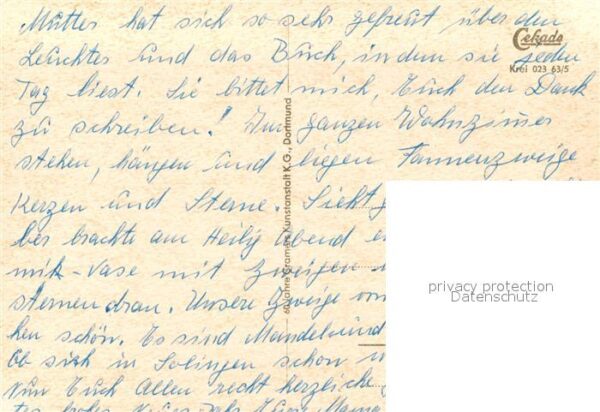 Mutter hat sich so sehr gefreut über den
Leuchter und das Buch, in dem sie jeden
Tag liest. Sie bittet mich, Euch den Dank
zu schreiben! Im ganzen Wohnzimmer
stehen, hängen und liegen Tannenzweige
Kerzen und Sterne. Sieht
ber brachte am Heilig Abend
mik-Vase mit Zweigen
sternen dran. Unsere Zweige
ken schön. Es sind Mandel und
Ob sich in Solingen schon
Nun Euch Allen recht herzlich
Cekade
Krei 023 63/5
60 Jahre Cramers Kunstanstalt K.G., Dortmund
privacy protection
Datenschutz